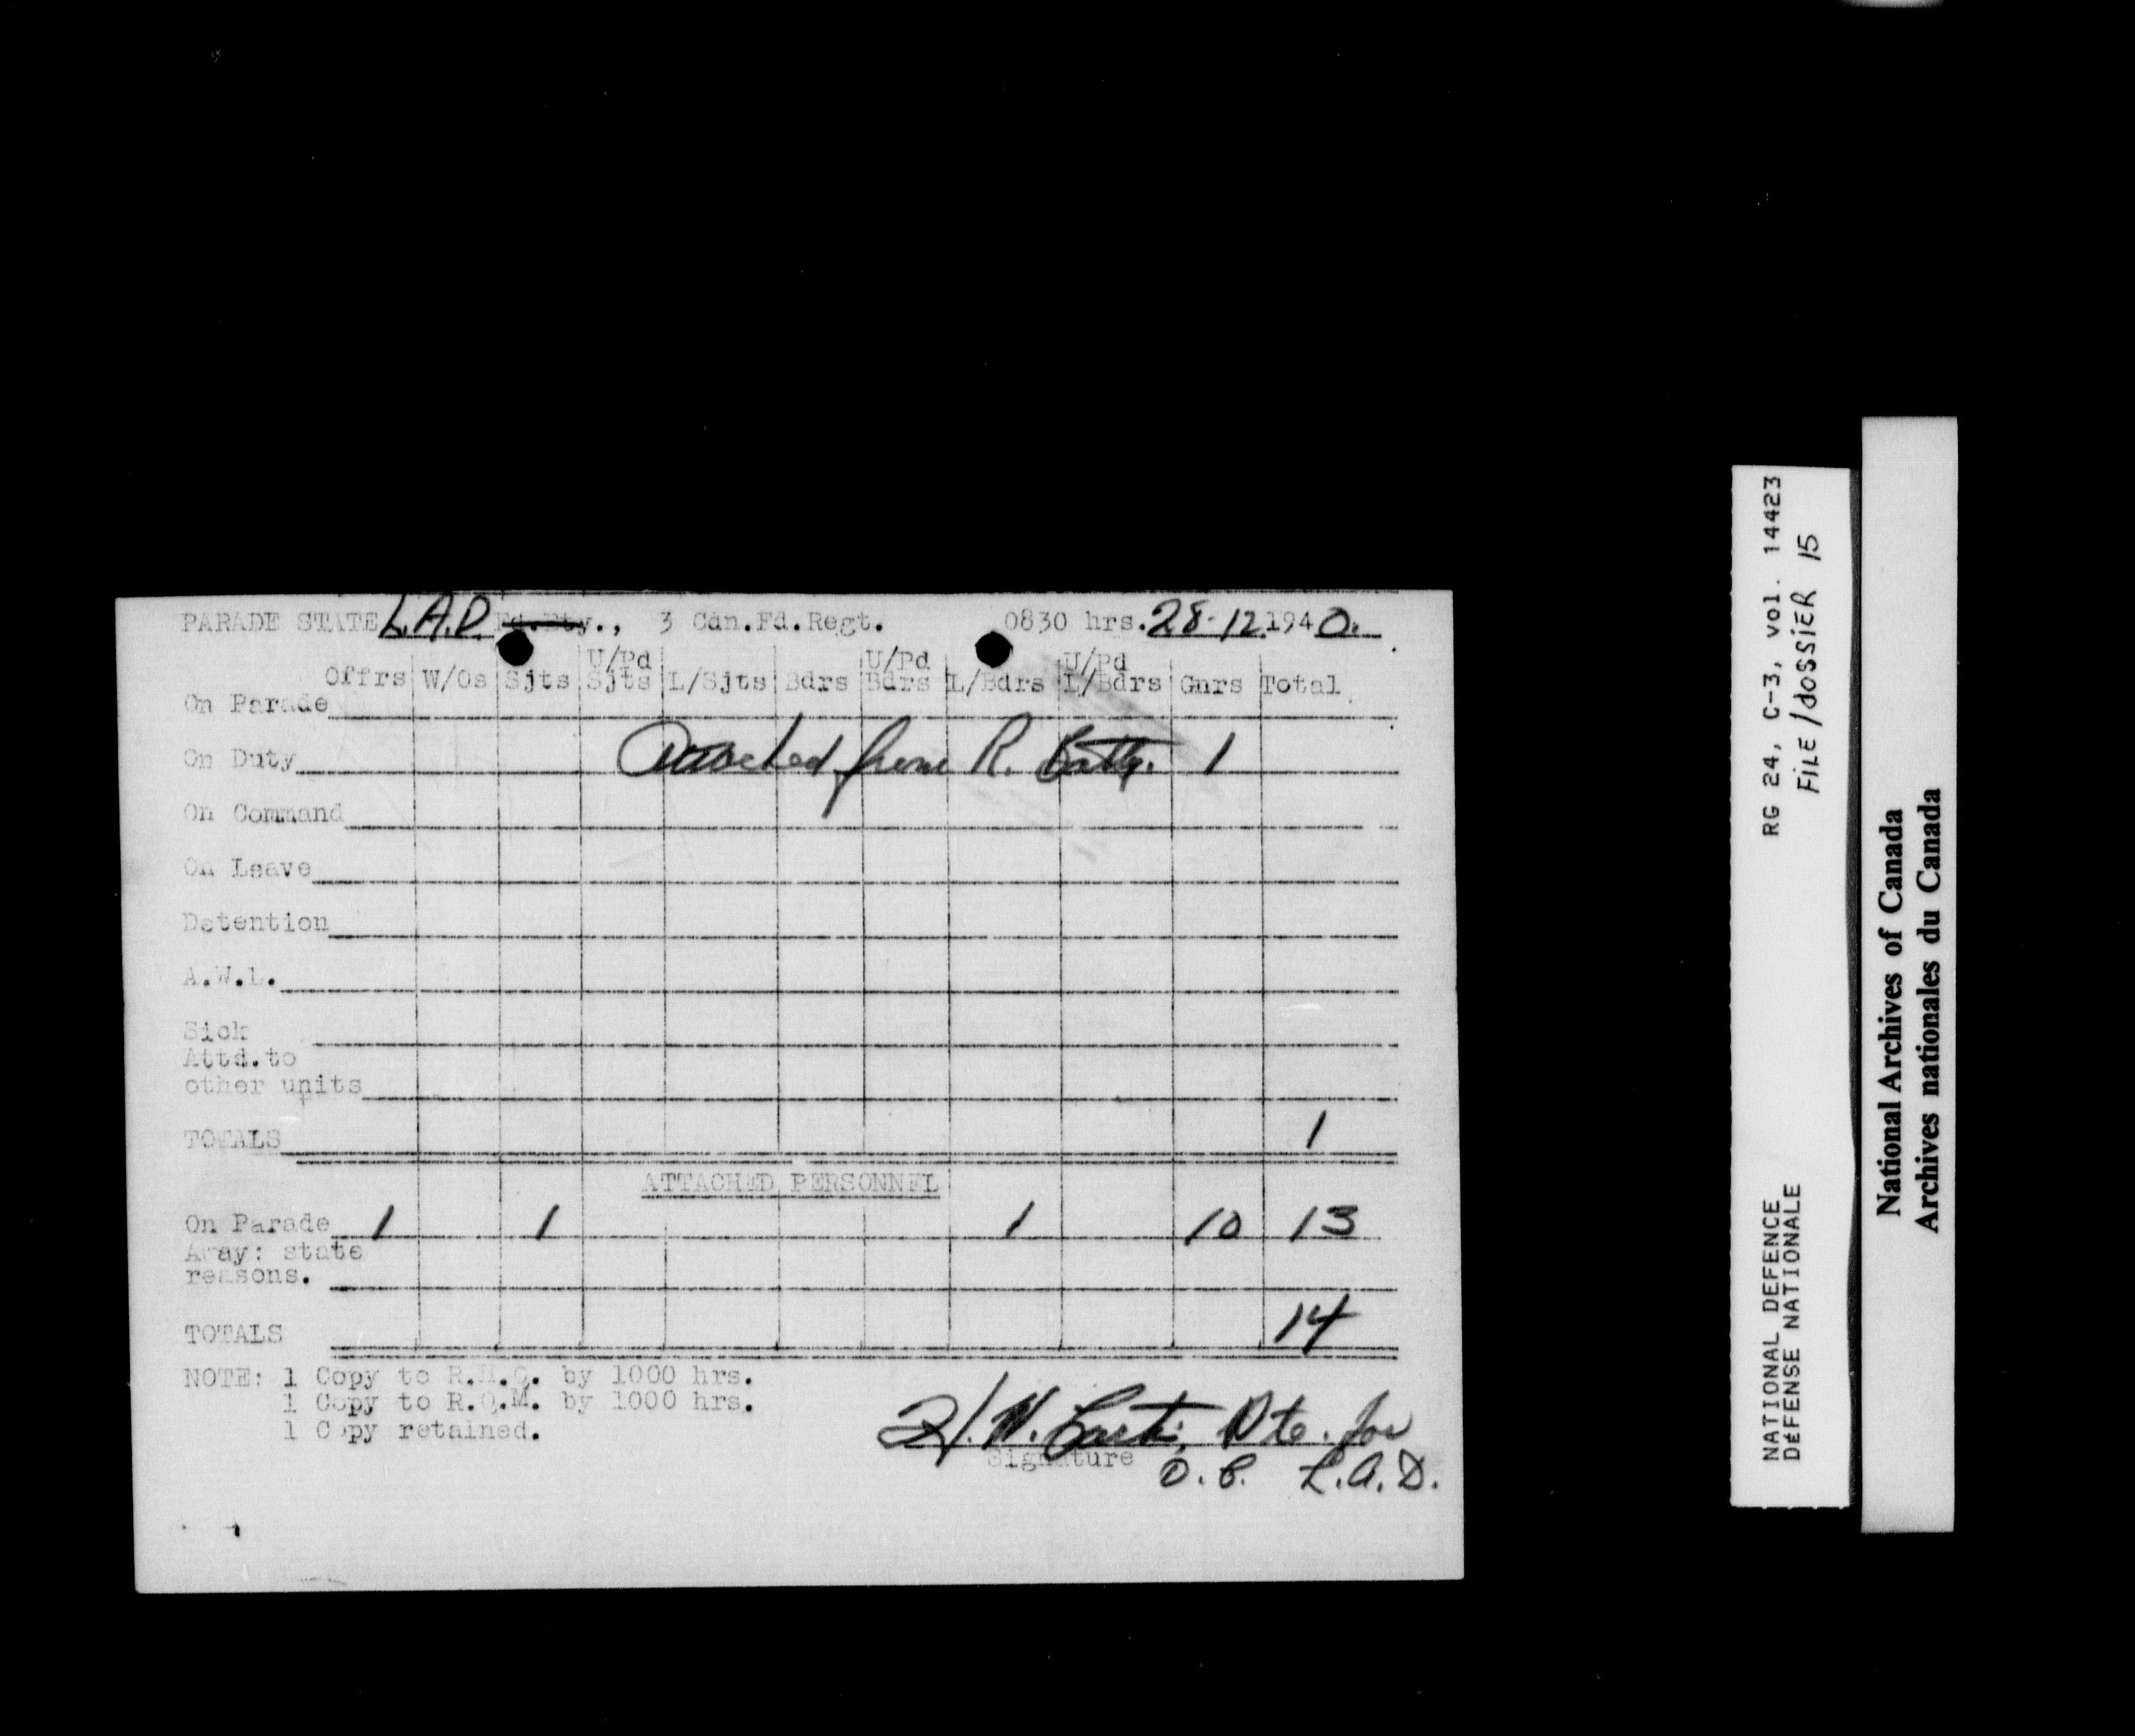 PARADE STATE L.A.D. Fd.Bty., 3 Can.Fd.Regt. 0830 hrs. 28-12 1940.
Offrs W/Os Sjts U/Pd Sjts L/Sjts Bdrs U/Pd Bdrs L/Bdrs U/Pd L/Bdrs Gnrs Total
On Parade
On Duty Attached from R. Batty. 1
On Command
On Leave
Detention
A.W.L.
Sick
Attd.to
other units
TOTALS 1
ATTACHED PERSONNEL
On Parade 1 1 1 10 13
Away: state
reasons.
TOTALS 14
NOTE: 1 Copy to R.H.Q. by 1000 hrs.
1 Copy to R.Q.M. by 1000 hrs.
1 Copy retained.
Pte. for
Signature
O.C. L.A.D.
RG 24, C-3, vol. 14423
FILE/dossier 15
NATIONAL DEFENCE
DÉFENSE NATIONALE
National Archives of Canada
Archives nationales du Canada